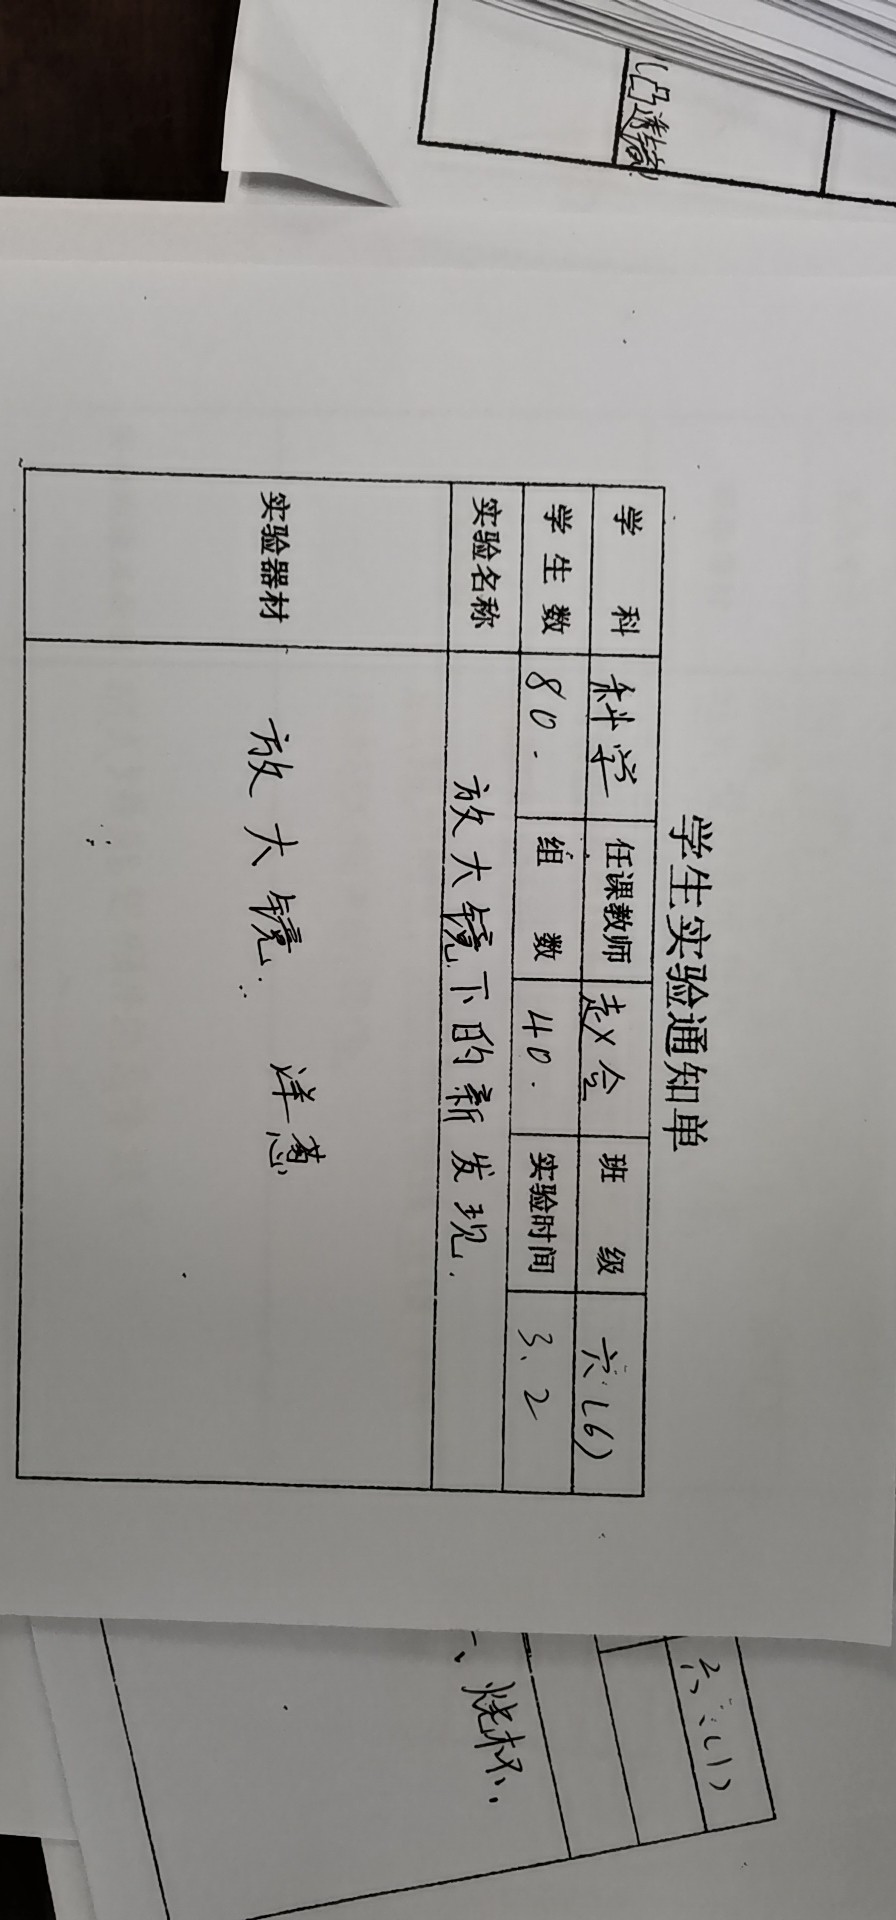 凸透镜
学生实验通知单
学 科 科学 任课教师 赵会 班 级 六(6)
学生数 80. 组 数 40. 实验时间 3.2
实验名称 放大镜下的新发现.
实验器材 放大镜. 洋葱
六(1)
、烧杯、